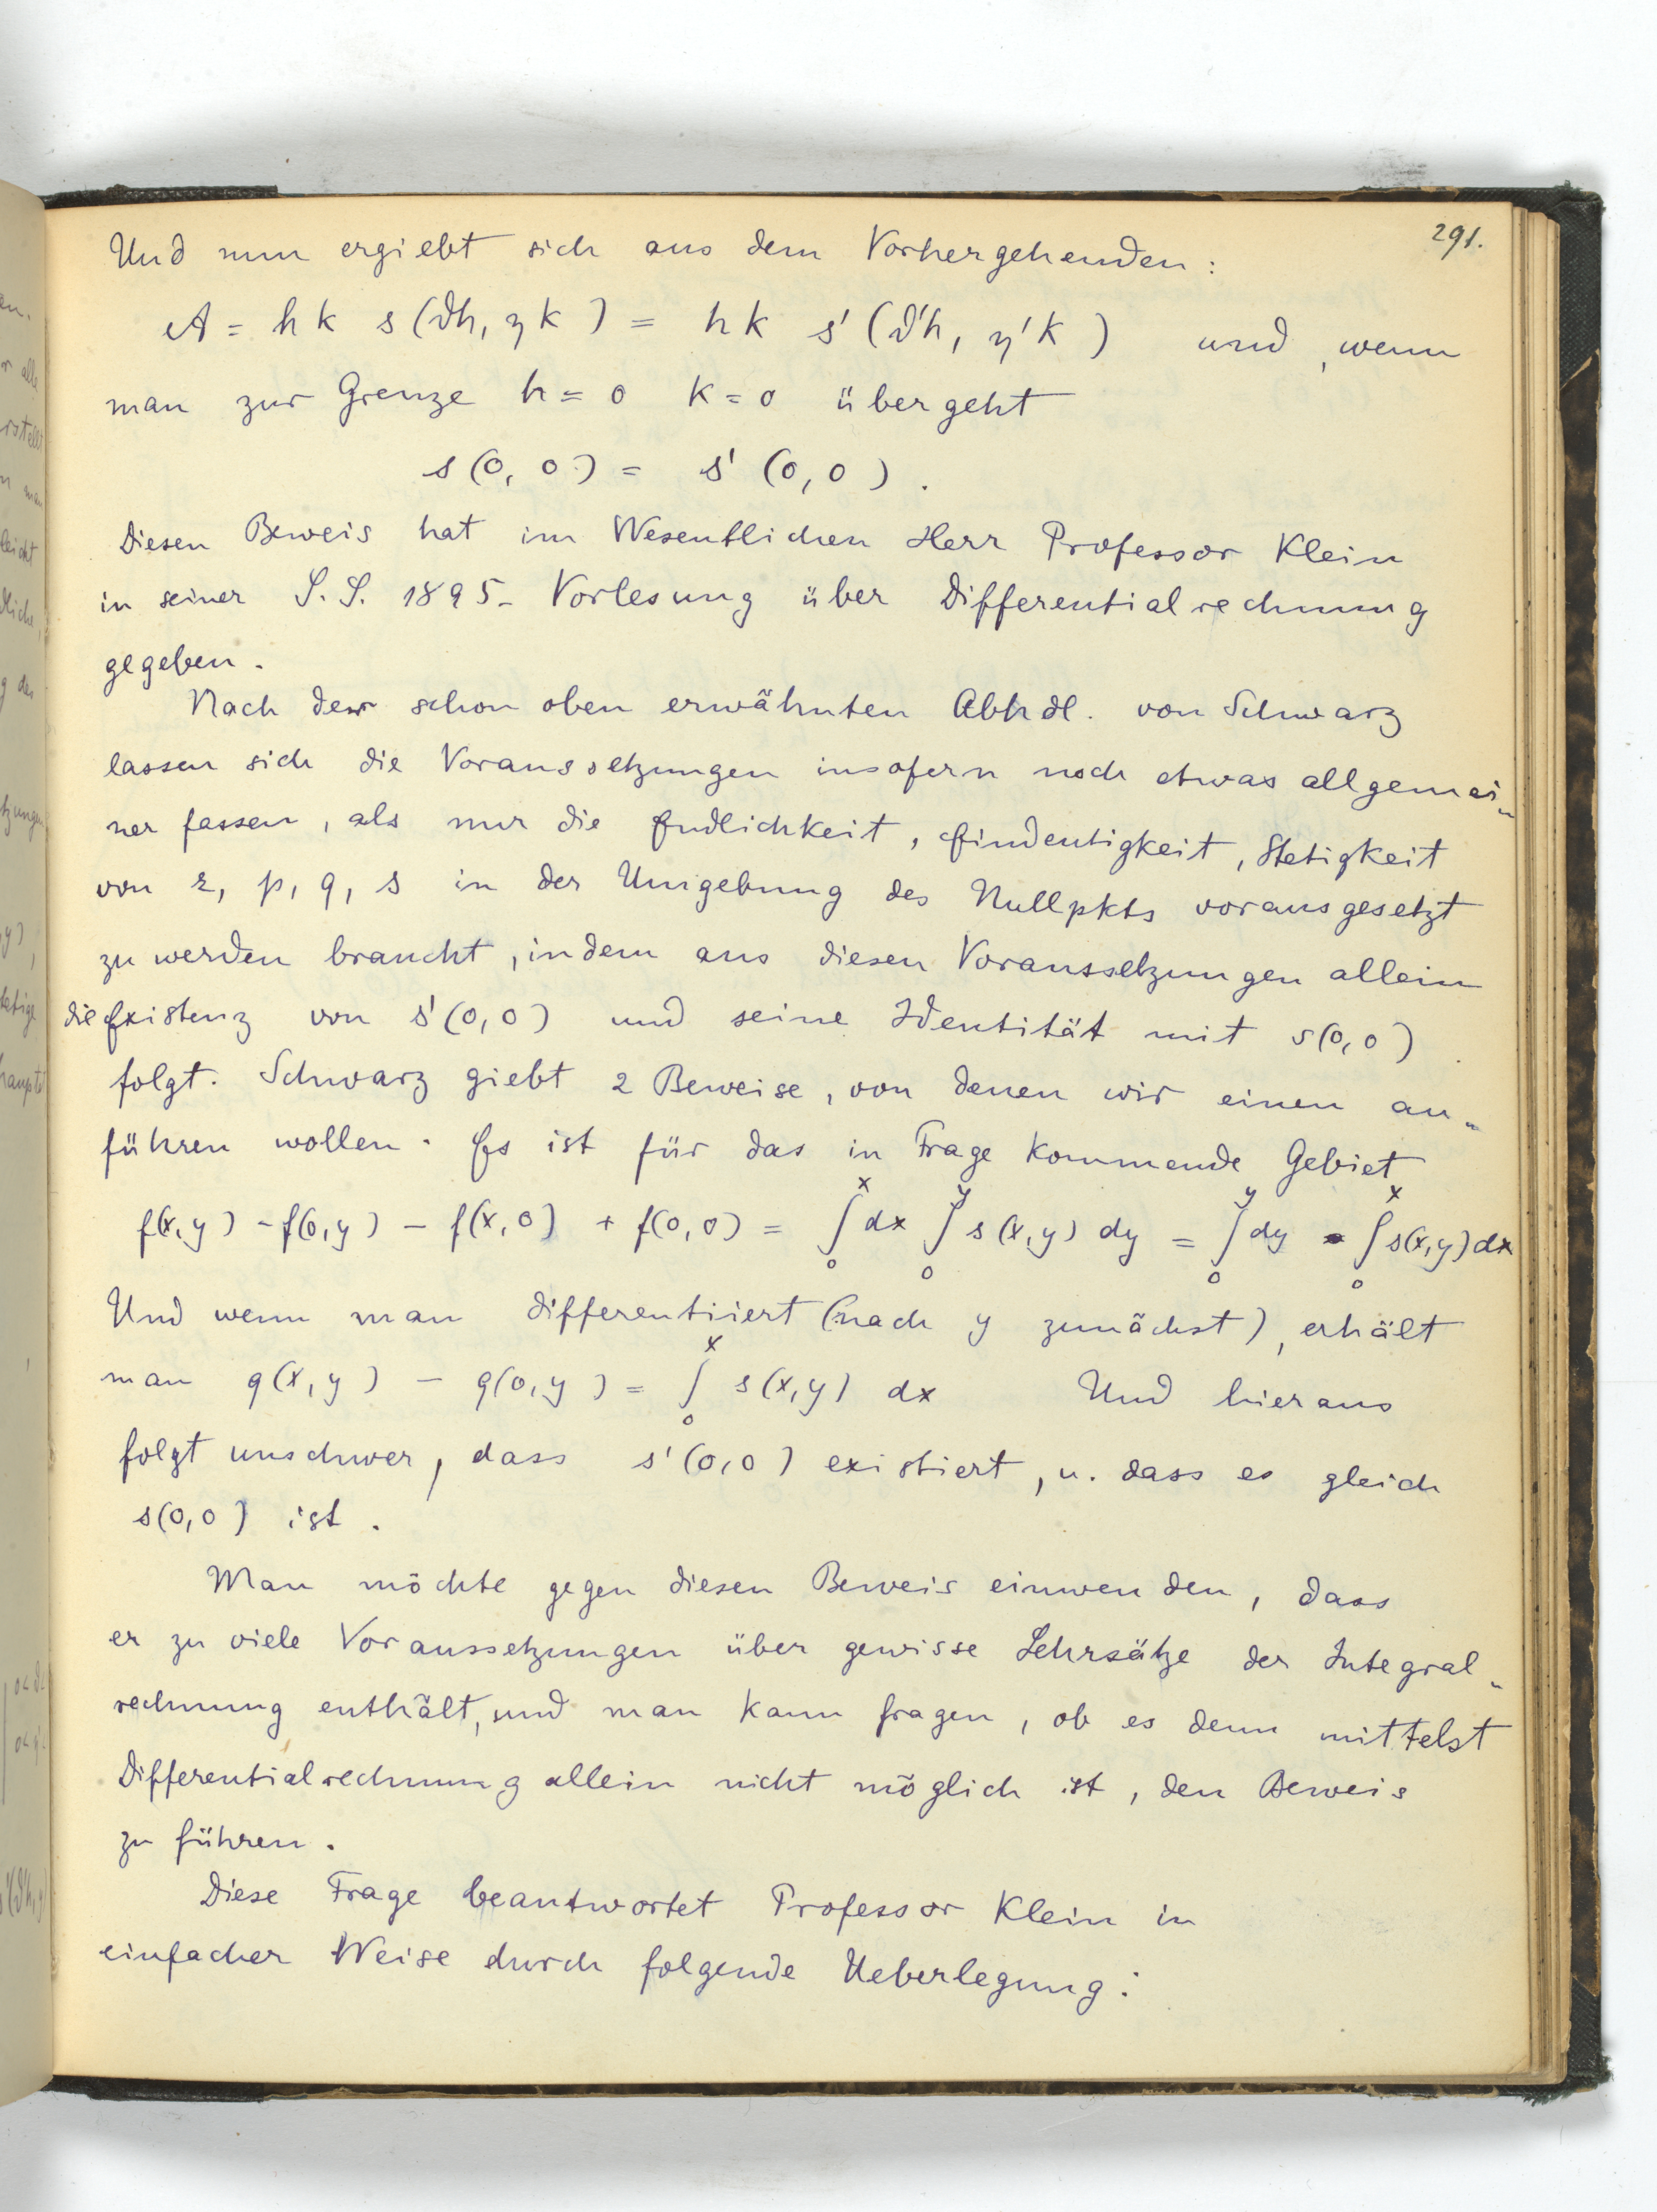 291.
Und nun ergiebt sich aus dem Vorhergehenden:
A = hk s(ϑh, ηk) = hk s'(ϑ'h, η'k) und, wenn
man zur Grenze h = 0 k = 0 übergeht
s(0, 0) = s'(0, 0).
Diesen Beweis hat im Wesentlichen Herr Professor Klein
in seiner S.S. 1895- Vorlesung über Differentialrechnung
gegeben.
Nach der schon oben erwähnten Abhdl. von Schwarz
lassen sich die Voraussetzungen insofern noch etwas allgemei-
ner fassen, als nur die Endlichkeit, Eindeutigkeit, Stetigkeit
von z, p, q, s in der Umgebung des Nullpkts vorausgesetzt
zu werden braucht, indem aus diesen Voraussetzungen allein
die Existenz von s'(0,0) und seine Identität mit s(0,0)
folgt. Schwarz giebt 2 Beweise, von denen wir einen an-
führen wollen. Es ist für das in Frage kommende Gebiet
f(x,y) - f(0,y) - f(x,0) + f(0,0) = ∫₀ˣ dx ∫₀ʸ s(x,y) dy = ∫₀ʸ dy ∫₀ˣ s(x,y) dx
Und wenn man differentiiert (nach y zunächst), erhält
man q(x,y) - q(0,y) = ∫₀ˣ s(x,y) dx Und hieraus
folgt unschwer, dass s'(0,0) existiert, u. dass es gleich
s(0,0) ist.
Man möchte gegen diesen Beweis einwenden, dass
er zu viele Voraussetzungen über gewisse Lehrsätze der Integral-
rechnung enthält, und man kann fragen, ob es denn mittelst
Differentialrechnung allein nicht möglich ist, den Beweis
zu führen.
Diese Frage beantwortet Professor Klein in
einfacher Weise durch folgende Ueberlegung: